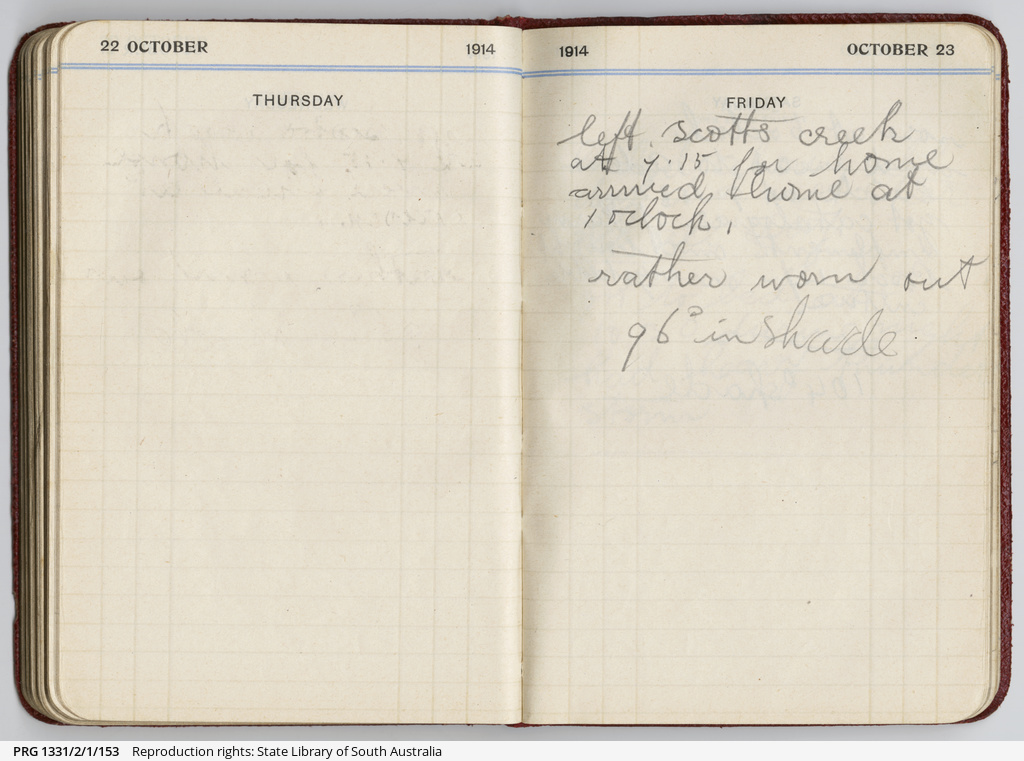 22 OCTOBER 1914
THURSDAY
1914 OCTOBER 23
FRIDAY
left scotts creek
at 7.15 for home
arrived home at
1 oclock,
rather worn out
96° in shade
PRG 1331/2/1/153 Reproduction rights: State Library of South Australia